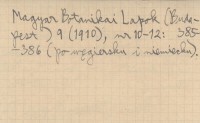 Magyar Botanikai Lapok (Buda-
pest) 9 (1910), nr 10-12: 385-
-386 (po węgiersku i niemiecku).